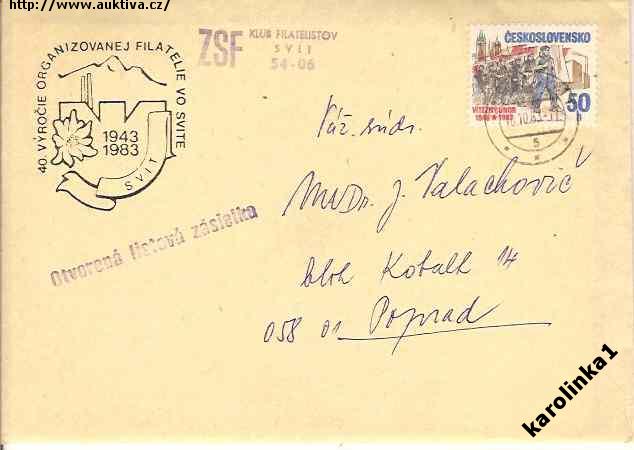 http://www.auktiva.cz/
40. VÝROČIE ORGANIZOVANEJ FILATELIE VO SVITE
1943
1983
SVIT
ZSF KLUB FILATELISTOV
SVIT
54-06
ČESKOSLOVENSKO
VÍŤEZNÝ ÚNOR
1948 1983
50
h
Otvorená listová zásielka
Váž. súdr.
MVDr. J. Valachovič
blok Kobalt 14
058 01 Poprad
karolinka1